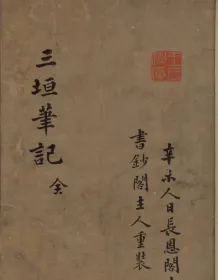 三垣筆記 全
辛未人日長恩閣
書鈔閣主人重裝